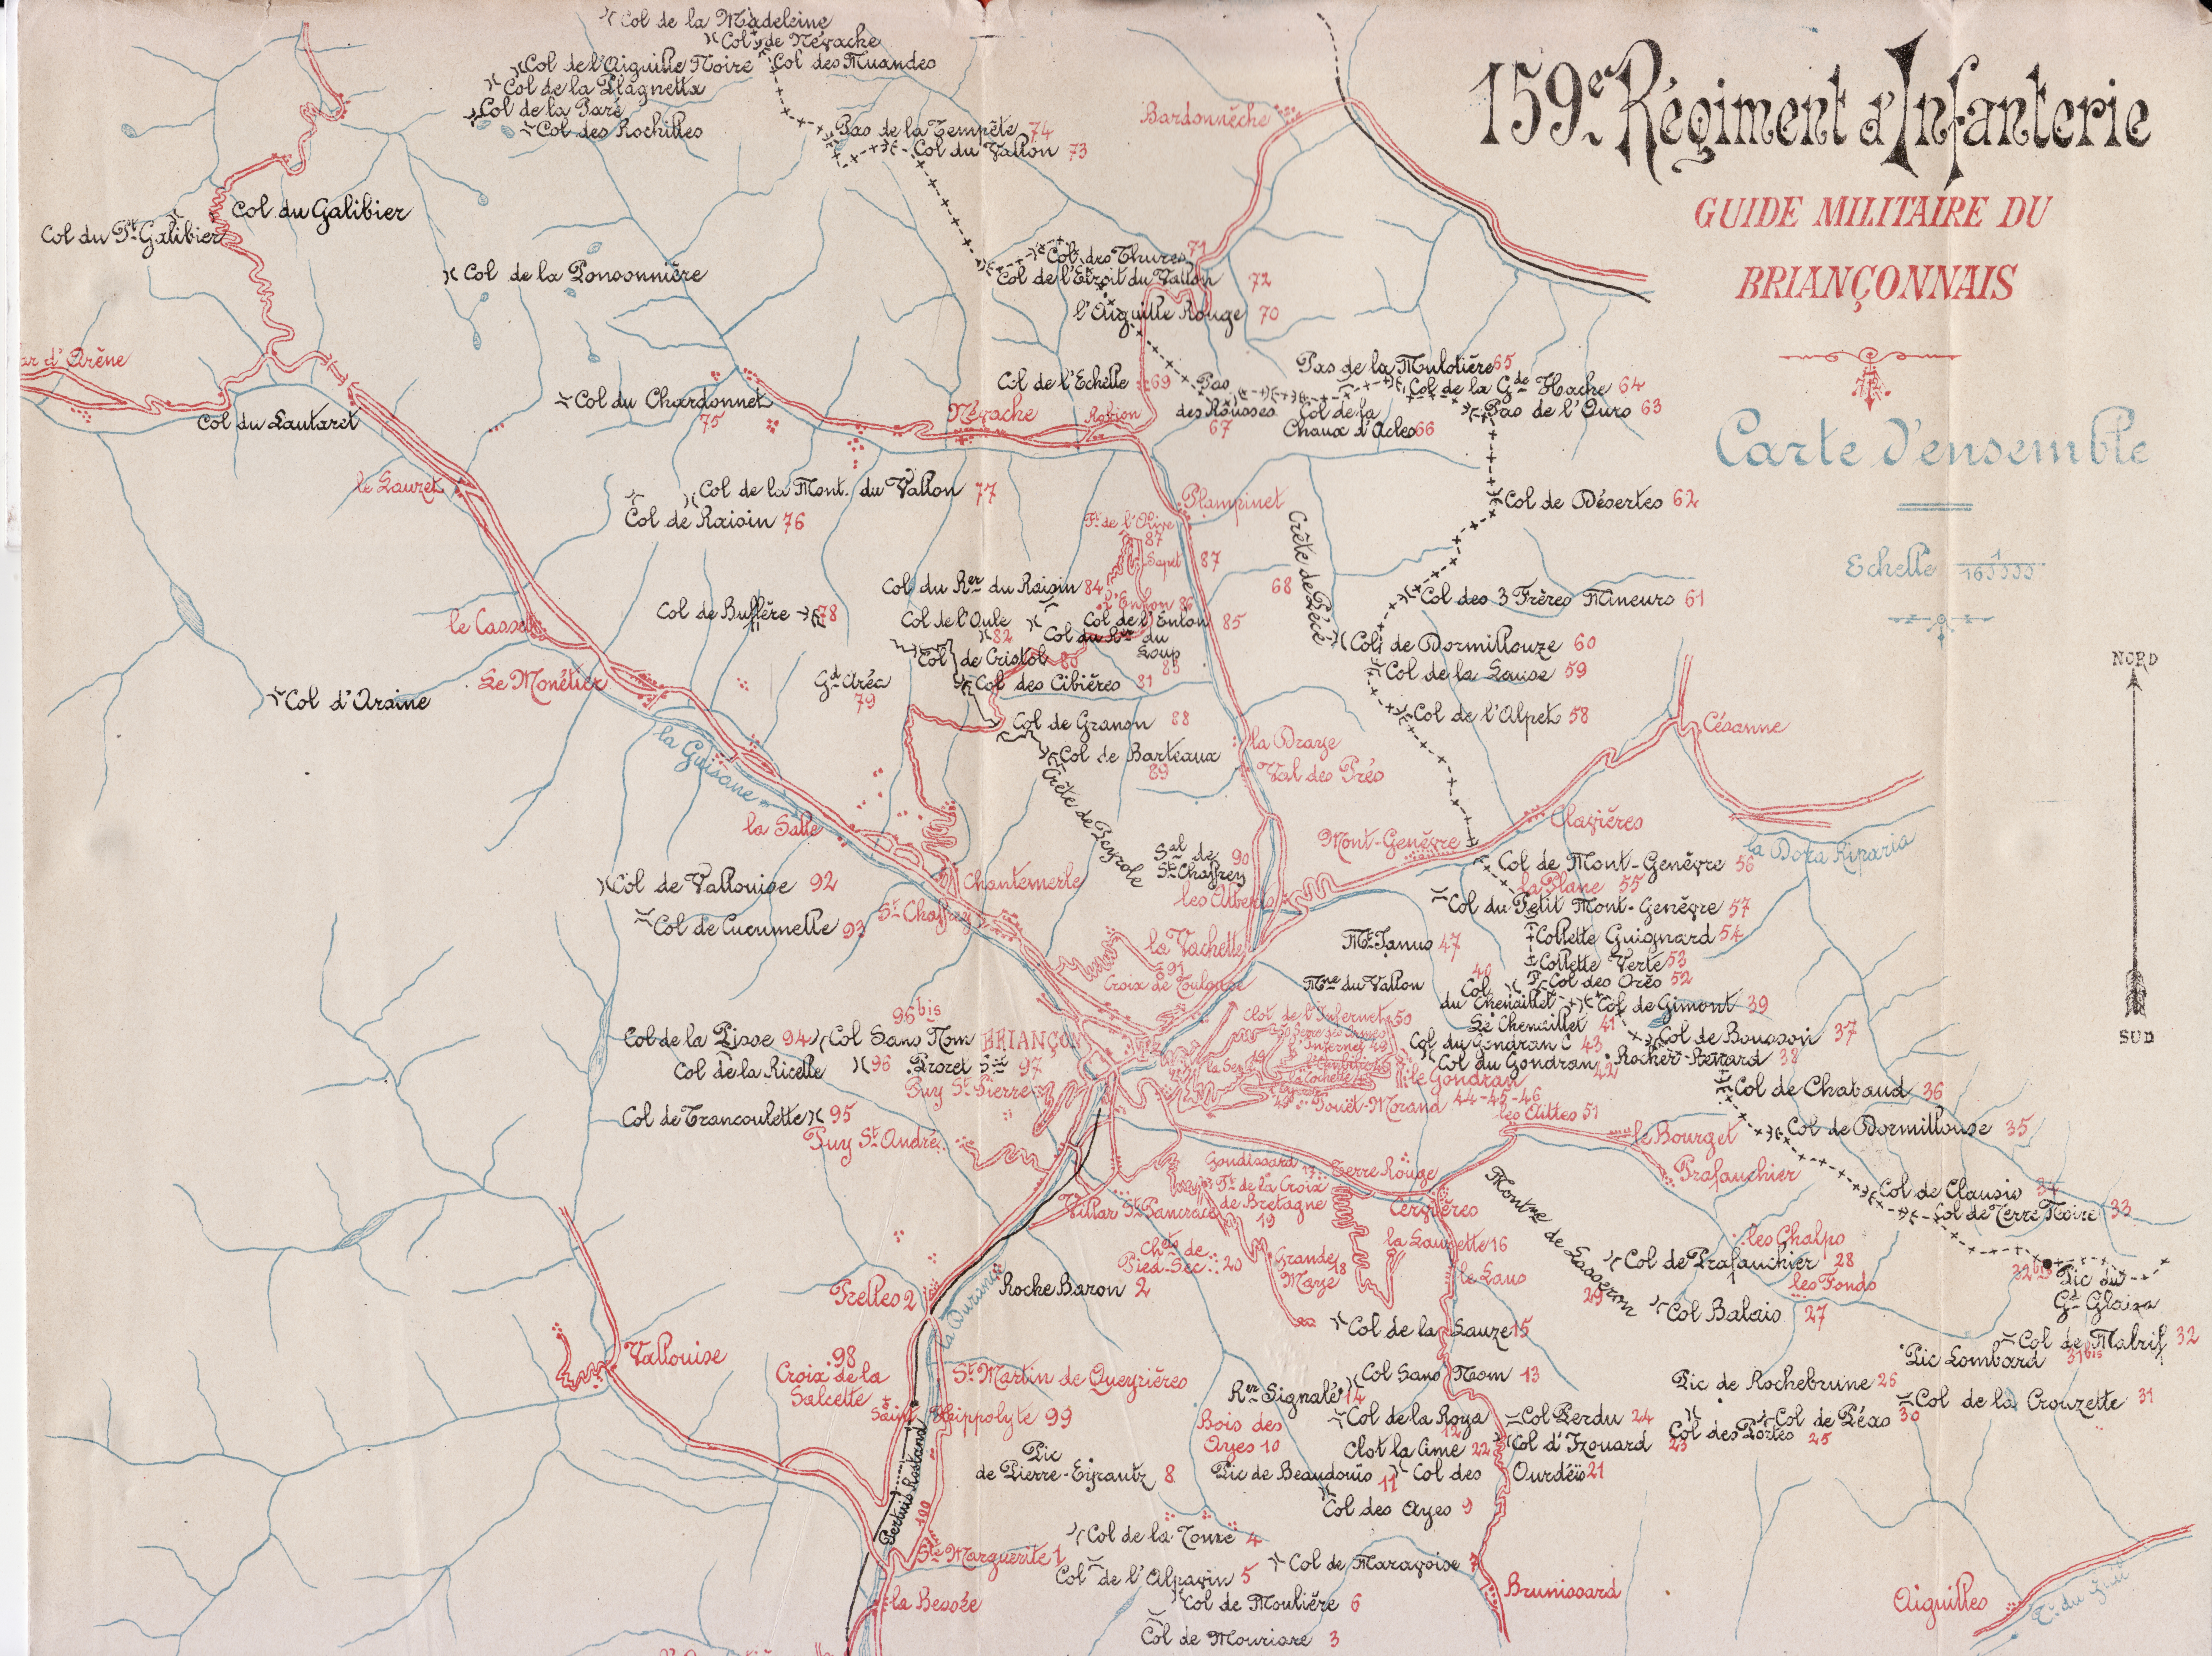 159e Régiment d'Infanterie
GUIDE MILITAIRE DU
BRIANÇONNAIS
Carte d'ensemble
Echelle
NORD
SUD
Col de la Madeleine
Col de Névache
Col de l'Aiguille Noire
Col des Muandes
Col de la Plagnetta
Col de la Paré
Col des Rochilles
Pas de la Tempête 74
Col du Vallon 73
Bardonnèche
Col du Galibier
Col du Pt Galibier
Col de la Ponsonnière
Col des Thures 71
Col de l'Etroit du Vallon 72
l'Aiguille Rouge 70
ar d'Arène
Col du Lautaret
Col du Chardonnet
75
Névache
Robion
Col de l'Echelle 69
Pas
des Rousses
67
Pas de la Mulotière 65
Col de la Gde Hache 64
Pas de l'Ours 63
Col de la
Chaux d'Acles 66
le Lauzet
Col de la Mont. du Vallon 77
Col de Raisin 76
Plampinet
Ft de l'Olive
87
Sapet 87
Crête de Pécé
68
Col de Désertes 62
Col du Rer du Raisin 84
l'Enlon 86
Col de l'Oule
82
Col de l'Enlon 85
Col du Rer du
Loup
83
Col de Cristol 80
Col des Cibières 81
Col de Buffère 78
Gd Aréa
79
Col des 3 Frères Mineurs 61
Col de Dormillouze 60
Col de la Lause 59
Col de l'Alpet 58
le Casset
Le Monêtier
Col d'Arsine
la Guisane
Col de Granon 88
Col de Barteaux
89
Crête de Peyrole
la Draye
Val des Prés
Césanne
Clavières
la Dora Riparia
la Salle
Mont-Genèvre
Col de Mont-Genèvre 56
la Plane 55
Col du Petit Mont-Genèvre 57
Collette Guignard 54
Collette Verte 53
Col des Orès 52
Sal de
St Chaffrey
90
les Alberts
Chantemerle
St Chaffrey
Col de Vallouise 92
Col de Cucumelle 93
la Vachette
91
Croix de Toulouse
Mt Janus 47
Mne du Vallon
40
Col
du Chenaillet
Col de Gimont 39
Le Chenaillet 41
Col de Bousson 37
Clot de l'Infernet 50
Col du Gondran C 43
Col du Gondran 42
Rocher-Renard 38
le Gondran
44-45-46
Poët-Morand
les Aittes 51
96bis
Col de la Pisse 94
Col Sans Nom
BRIANÇON
Col de la Ricelle
96
Prorel
97
Puy St Pierre
Col de Trancoulette 95
Puy St André
Col de Chabaud 36
Col de Dormillouse 35
le Bourget
Prafauchier
Col de Clausis 34
Col de Terre Noire 33
32bis
Pic du
Gd Glaiza
Gondissard 17
Ft de la Croix
de Bretagne
19
Terre Rouge
Cervières
Villar St Pancrace
Chets de
Pied-Sec 20
Grande
Maye
18
la Lauzette 16
le Laus
Montne de Lasseron
29
les Chalps
Col de Prafauchier 28
les Fonds
Col Balais 27
Prelles 2
Roche Baron 2
la Durance
Col de la Lauze 15
Col de Malrif 32
Pic Lombard 31bis
Vallouise
98
Croix de la
Salcette
St Martin de Queyrières
Saint Hippolyte 99
Col Sans Nom 13
Rer Signalé 14
Bois des
Ayes 10
Col de la Roya
12
Clot la Cime 22
Col Perdu 24
Col d'Izouard 23
Pic de Rochebrune 26
Col de Péas 30
Col des Portes 25
Col de la Crouzette 31
Pic
de Pierre-Eyrautz 8
Pic de Beaudouis
11
Col des Ourdéis 21
Col des Ayes 9
Pertuis Rostand
100
Ste Marguerite 1
la Bessée
Col de la Touré 4
Col de l'Alpavin 5
Col de Moulière 6
Col de Mouriare 3
Col de Maravoise 7
Brunissard
Aiguilles
T. du Guil